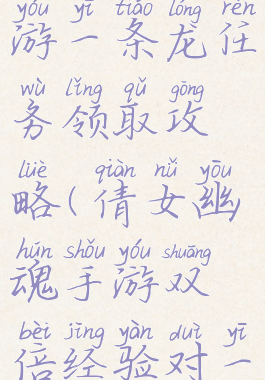 yóu yī tiáo lóng rèn
游一条龙任
wù lǐng qǔ gōng
务领取攻
lüè qiàn nǚ yōu
略(倩女幽
hún shǒu yóu shuāng
魂手游双
bèi jīng yàn duì yī
倍经验对一